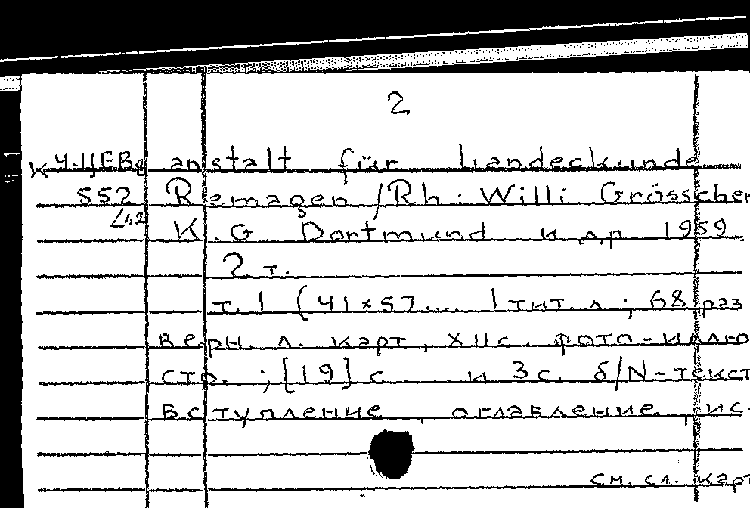 2
К У-ЦЕВg anstalt für Landeckunde
552 Remagen /Rh: Willi Grösschen
/42 K.G Dortmund и др 1959
2 т.
т. 1 (41×57... 1 тит л; 68 раз
верн. л. карт, XIIс. фото-иллю
стр. ; [19] с и 3с. б/N-текст
Вступление, оглавление, ис-
см. сл. карт